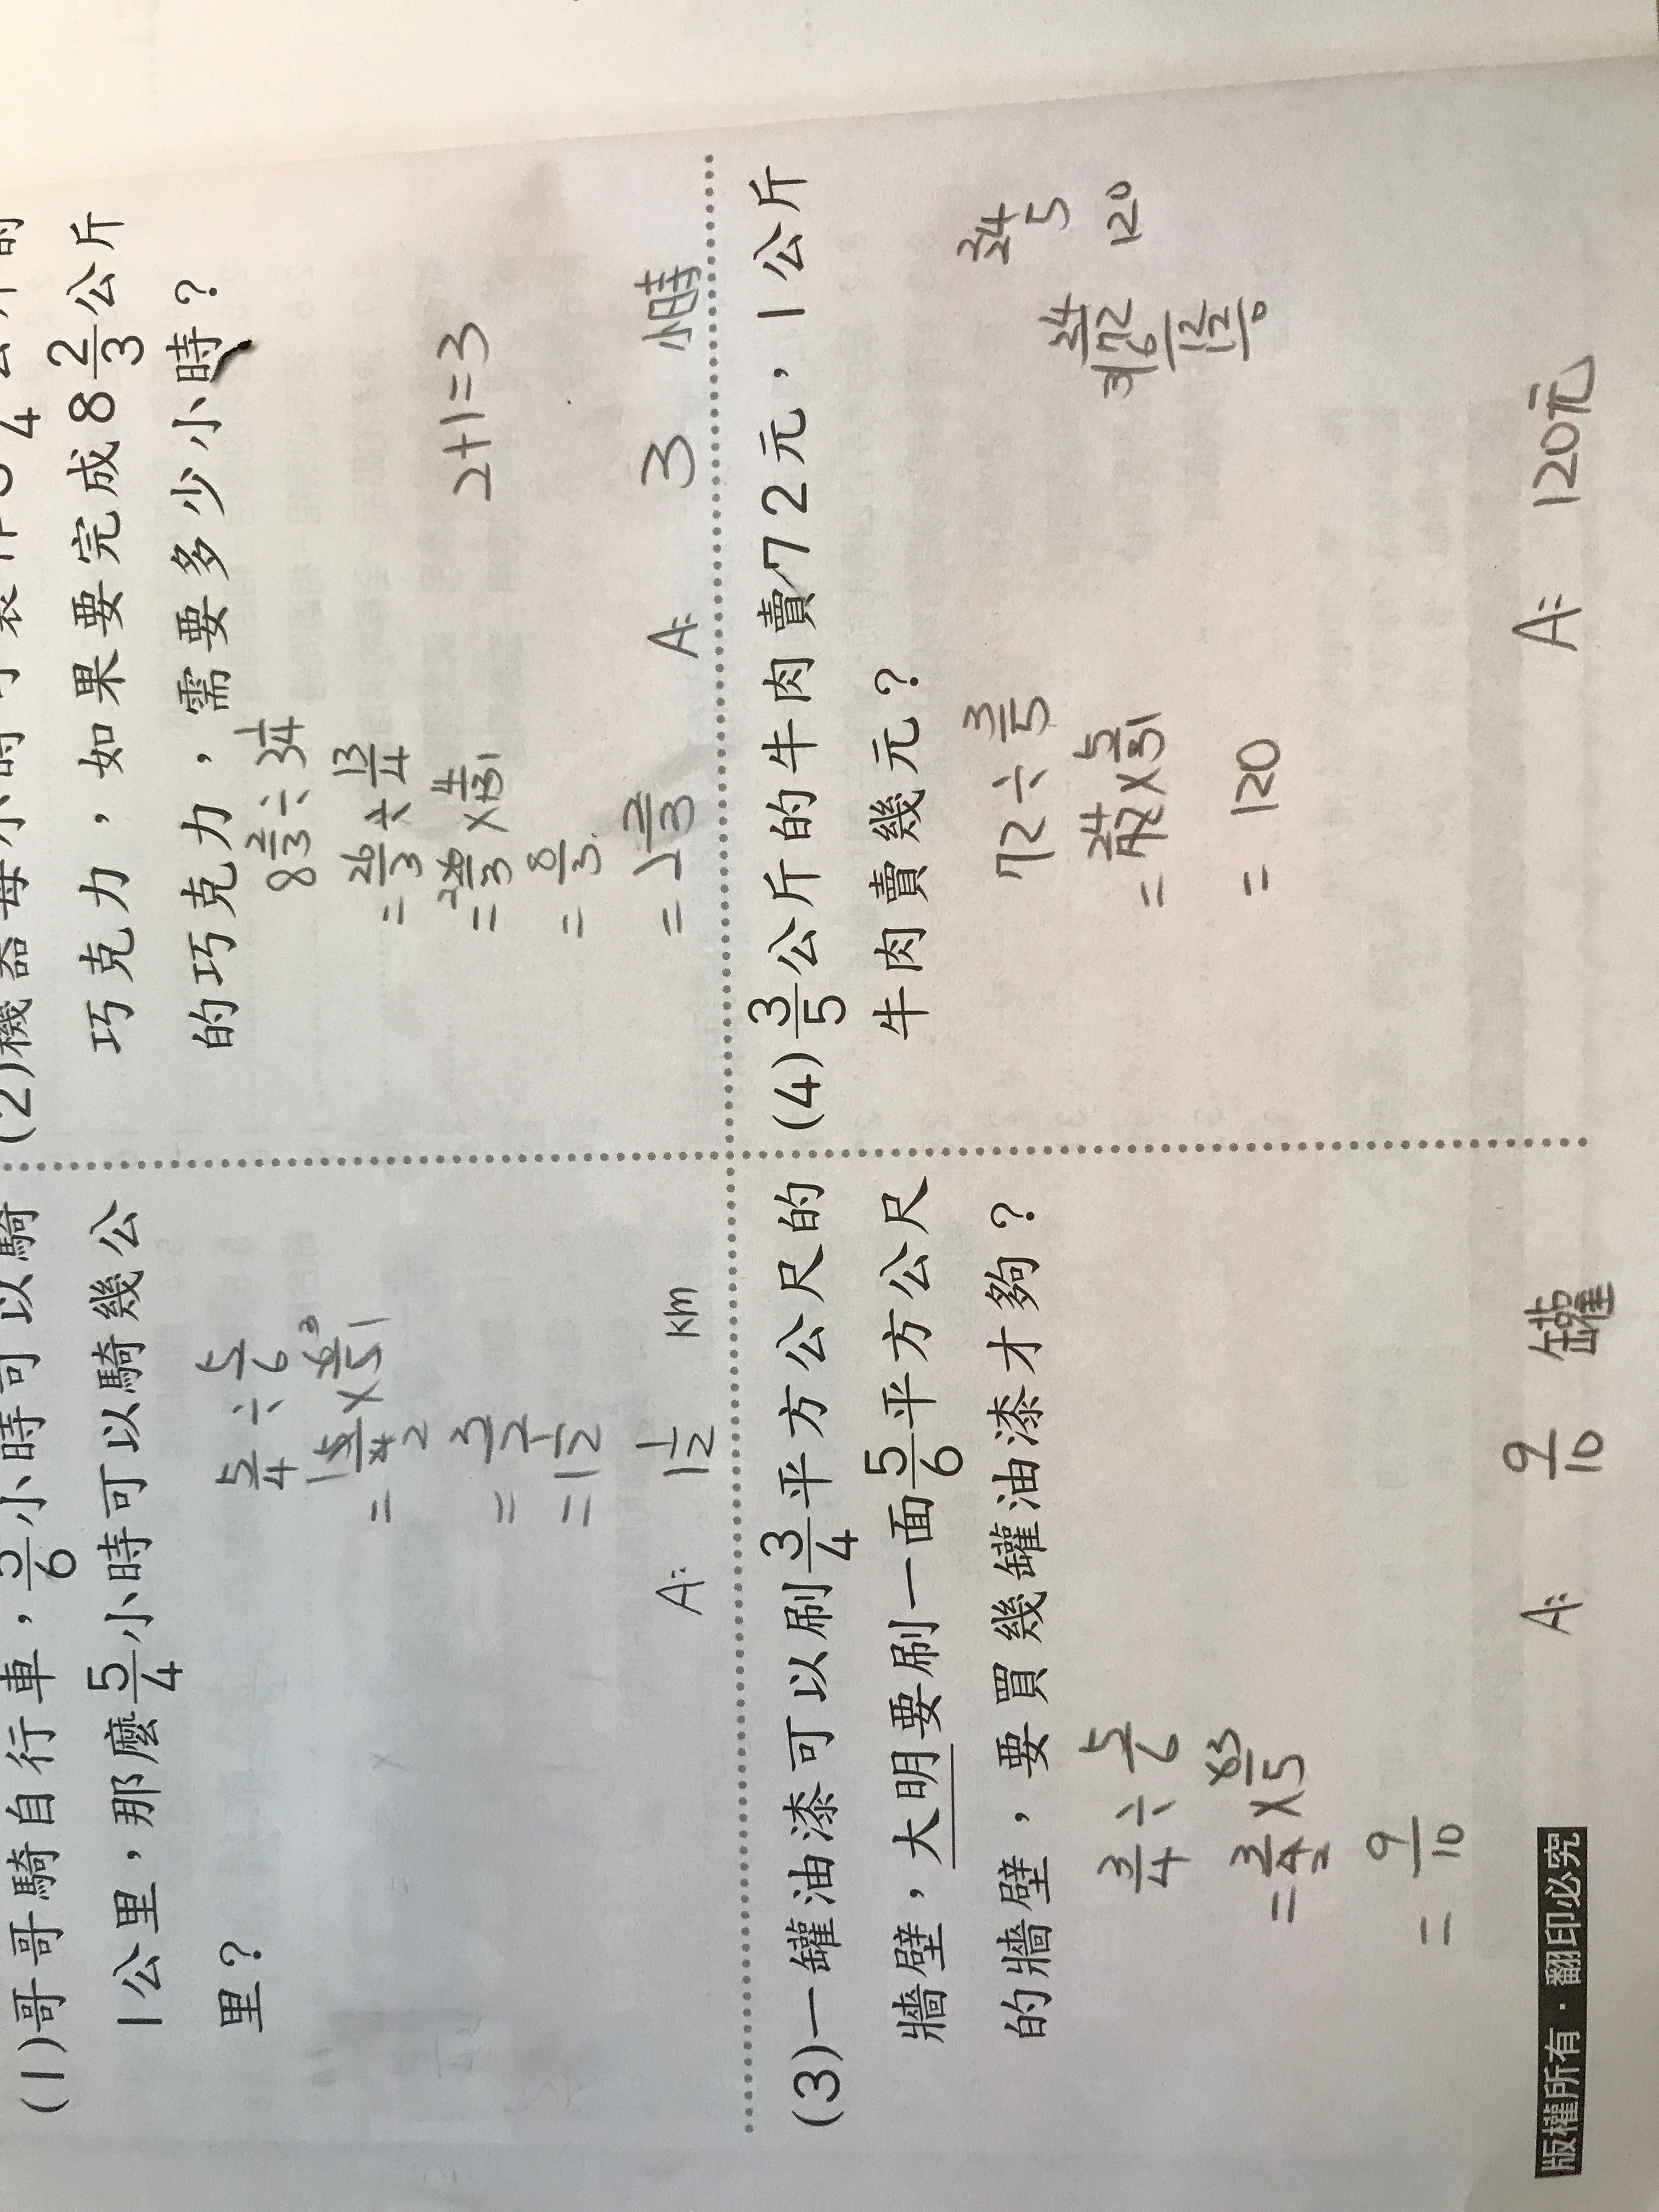 (1)哥哥騎自行車，5/6小時可以騎
1公里，那麼5/4小時可以騎幾公
里？
5/4÷5/6
=5/4×6/5
=3/2
=1 1/2
A: 1 1/2 km
(2)機器每小時可製作3 1/4
巧克力，如果要完成8 2/3公斤
的巧克力，需要多少小時？
8 2/3÷3 1/4
=26/3÷13/4
=26/3×4/13
=8/3
=2 2/3
2+1=3
A: 3 小時
(3)一罐油漆可以刷3/4平方公尺的
牆壁，大明要刷一面5/6平方公尺
的牆壁，要買幾罐油漆才夠？
3/4÷5/6
=3/4×6/5
=9/10
A: 9/10 罐
(4)3/5公斤的牛肉賣72元，1公斤
牛肉賣幾元？
72÷3/5
=72×5/3
=120
24
3)72
6
12
12
0
24
5
120
A: 120元
版權所有・翻印必究